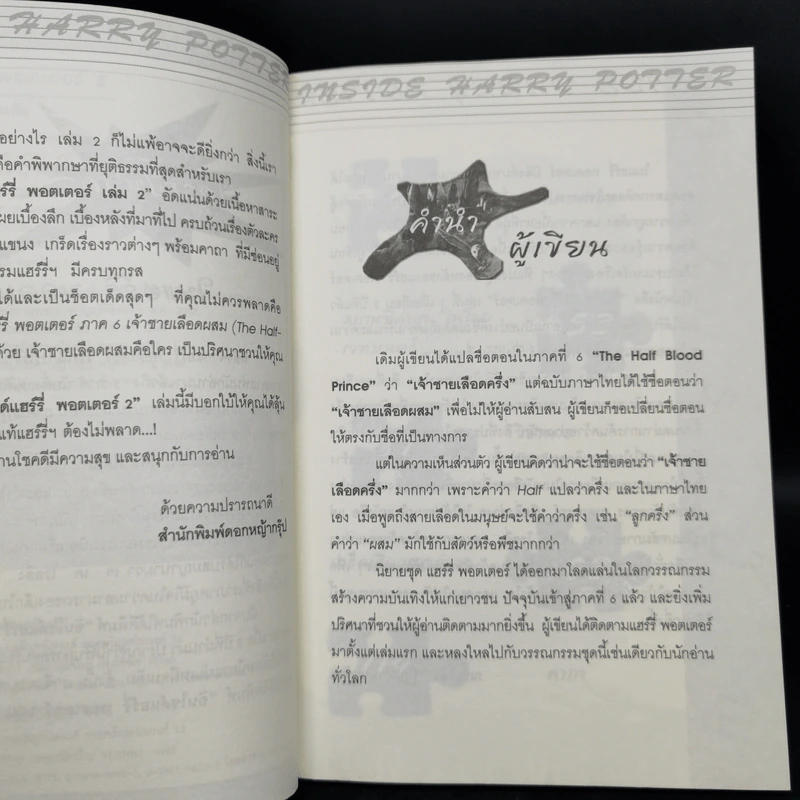 HARRY POTTER
อย่างไร เล่ม 2 ก็ไม่แพ้อาจจะดียิ่งกว่า สิ่งนี้เรา
คือคำพิพากษาที่ยุติธรรมที่สุดสำหรับเรา
พอตเตอร์ เล่ม 2” อัดแน่นด้วยเนื้อหาสาระ
เบื้องลึก เบื้องหลังที่มาที่ไป ครบถ้วนเรื่องตัวละคร
แขนง เกร็ดเรื่องราวต่างๆ พร้อมคาถา ที่มีซ่อนอยู่
แฮร์รี่ฯ มีครบทุกรส
ได้และเป็นช็อตเด็ดสุดๆ ที่คุณไม่ควรพลาดคือ
พอตเตอร์ ภาค 6 เจ้าชายเลือดผสม (The Half-
ด้วย เจ้าชายเลือดผสมคือใคร เป็นปริศนาชวนให้คุณ
พอตเตอร์ 2” เล่มนี้มีบอกใบ้ให้คุณได้ลุ้น
แท้แฮร์รี่ฯ ต้องไม่พลาด...!
โชคดีมีความสุข และสนุกกับการอ่าน
ด้วยความปรารถนาดี
สำนักพิมพ์ดอกหญ้ากรุ๊ป
INSIDE HARRY POTTER
คำนำ
ผู้เขียน
เดิมผู้เขียนได้แปลชื่อตอนในภาคที่ 6 “The Half Blood
Prince” ว่า “เจ้าชายเลือดครึ่ง” แต่ฉบับภาษาไทยได้ใช้ชื่อตอนว่า
“เจ้าชายเลือดผสม” เพื่อไม่ให้ผู้อ่านสับสน ผู้เขียนก็ขอเปลี่ยนชื่อตอน
ให้ตรงกับชื่อที่เป็นทางการ
แต่ในความเห็นส่วนตัว ผู้เขียนคิดว่าน่าจะใช้ชื่อตอนว่า “เจ้าชาย
เลือดครึ่ง” มากกว่า เพราะคำว่า Half แปลว่าครึ่ง และในภาษาไทย
เอง เมื่อพูดถึงสายเลือดในมนุษย์จะใช้คำว่าครึ่ง เช่น “ลูกครึ่ง” ส่วน
คำว่า “ผสม” มักใช้กับสัตว์หรือพืชมากกว่า
นิยายชุด แฮร์รี่ พอตเตอร์ ได้ออกมาโลดแล่นในโลกวรรณกรรม
สร้างความบันเทิงให้แก่เยาวชน ปัจจุบันเข้าสู่ภาคที่ 6 แล้ว และยิ่งเพิ่ม
ปริศนาที่ชวนให้ผู้อ่านติดตามมากยิ่งขึ้น ผู้เขียนได้ติดตามแฮร์รี่ พอตเตอร์
มาตั้งแต่เล่มแรก และหลงใหลไปกับวรรณกรรมชุดนี้เช่นเดียวกับนักอ่าน
ทั่วโลก